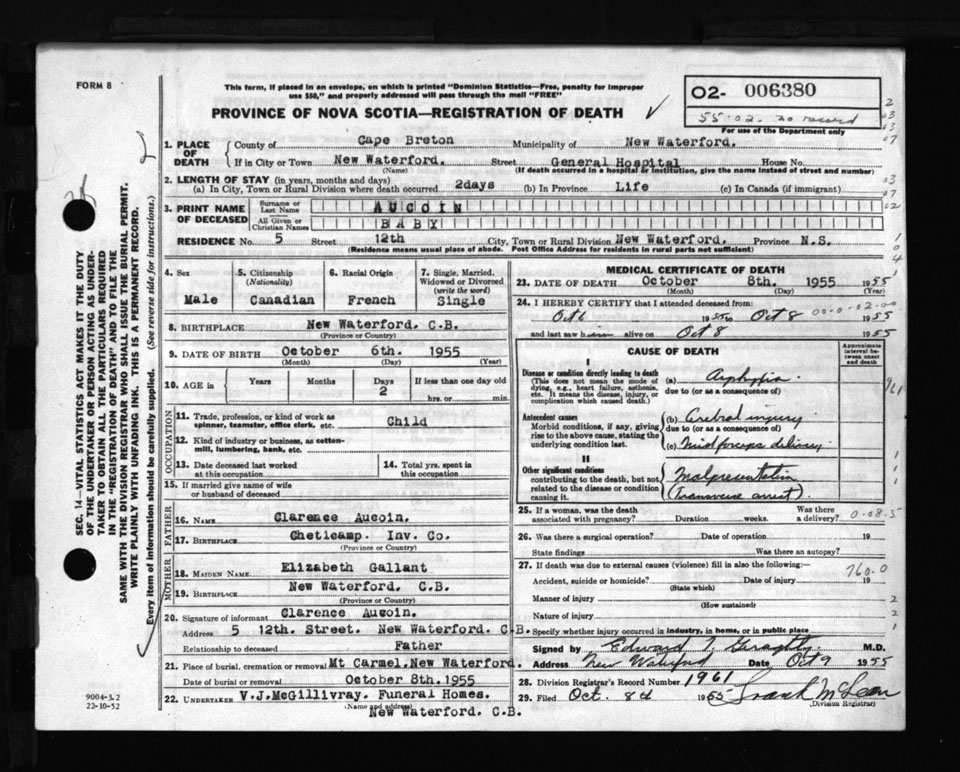 FORM 8
This form, if placed in an envelope, on which is printed "Dominion Statistics—Free, penalty for improper
use $50," and properly addressed will pass through the mail "FREE"
PROVINCE OF NOVA SCOTIA—REGISTRATION OF DEATH
O2- 006380
55-02. no record
For use of the Department only
1. PLACE OF DEATH
County of Cape Breton Municipality of New Waterford.
If in City or Town New Waterford. Street General Hospital House No.
(Name) (If death occurred in a hospital or institution, give the name instead of street and number)
2. LENGTH OF STAY (in years, months and days)
(a) In City, Town or Rural Division where death occurred 2days (b) In Province Life (c) In Canada (if immigrant)
3. PRINT NAME OF DECEASED
Surname or Last Name AUCOIN
All Given or Christian Names BABY
RESIDENCE No. 5 Street 12th City, Town or Rural Division New Waterford. Province N.S.
(Residence means usual place of abode. Post Office Address for residents in rural parts not sufficient)
4. Sex
Male
5. Citizenship
(Nationality)
Canadian
6. Racial Origin
French
7. Single, Married, Widowed or Divorced
(write the word)
Single
8. BIRTHPLACE New Waterford. C.B.
(Province or Country)
9. DATE OF BIRTH October 6th. 1955
(Month) (Day) (Year)
10. AGE in Years Months Days If less than one day old
2 hrs. or min.
OCCUPATION
11. Trade, profession, or kind of work as
spinner, teamster, office clerk, etc. Child
12. Kind of industry or business, as cotton-
mill, lumbering, bank, etc.
13. Date deceased last worked
at this occupation
14. Total yrs. spent in
this occupation
15. If married give name of wife
or husband of deceased
FATHER
16. NAME Clarence Aucoin.
17. BIRTHPLACE Cheticamp. Inv. Co.
(Province or Country)
MOTHER
18. MAIDEN NAME Elizabeth Gallant
19. BIRTHPLACE New Waterford. C.B.
(Province or Country)
20. Signature of informant Clarence Aucoin.
Address 5 12th. Street. New Waterford. C.B.
Relationship to deceased Father
21. Place of burial, cremation or removal Mt Carmel.New Waterford.
Date of burial or removal October 8th.1955
22. UNDERTAKER V.J.McGillivray. Funeral Homes.
(Name and address)
New Waterford. C.B.
MEDICAL CERTIFICATE OF DEATH
23. DATE OF DEATH October 8th. 1955 1955
(Month) (Day) (Year)
24. I HEREBY CERTIFY that I attended deceased from:
Oct 6 1955 to Oct 8 1955
00-0-02-00
and last saw him alive on Oct 8 1955
CAUSE OF DEATH
Approximate interval between onset and death
I
Disease or condition directly leading to death
(This does not mean the mode of dying, e.g., heart failure, asthenia, etc. It means the disease, injury, or complication which caused death.)
(a) Asphyxia.
due to (or as a consequence of)
Antecedent causes
Morbid conditions, if any, giving rise to the above cause, stating the underlying condition last.
(b) Cerebral injury
due to (or as a consequence of)
(c) Mid forceps delivery
II
Other significant conditions
contributing to the death, but not related to the disease or condition causing it.
Malpresentation
(Transverse arrest).
961
25. If a woman, was the death
associated with pregnancy? Duration weeks. Was there
a delivery?
0-08-5
26. Was there a surgical operation? Date of operation 19
State findings Was there an autopsy?
27. If death was due to external causes (violence) fill in also the following:—
760.0
Accident, suicide or homicide? Date of injury 19
(State which)
Manner of injury
(How sustained)
Nature of injury
Specify whether injury occurred in industry, in home, or in public place
Signed by Edward M.D.
Address New Waterford Date Oct 9 1955
28. Division Registrar's Record Number 1961
29. Filed Oct. 8th 1955 Frank McLean
(Division Registrar)
SEC. 14—VITAL STATISTICS ACT MAKES IT THE DUTY
OF THE UNDERTAKER OR PERSON ACTING AS UNDER-
TAKER TO OBTAIN ALL THE PARTICULARS REQUIRED
IN THE "REGISTRATION OF DEATH" AND TO FILE THE
SAME WITH THE DIVISION REGISTRAR WHO SHALL ISSUE THE BURIAL PERMIT.
WRITE PLAINLY WITH UNFADING INK. THIS IS A PERMANENT RECORD.
Every item of information should be carefully supplied. (See reverse side for instructions.)
9004-3.2
22-10-52